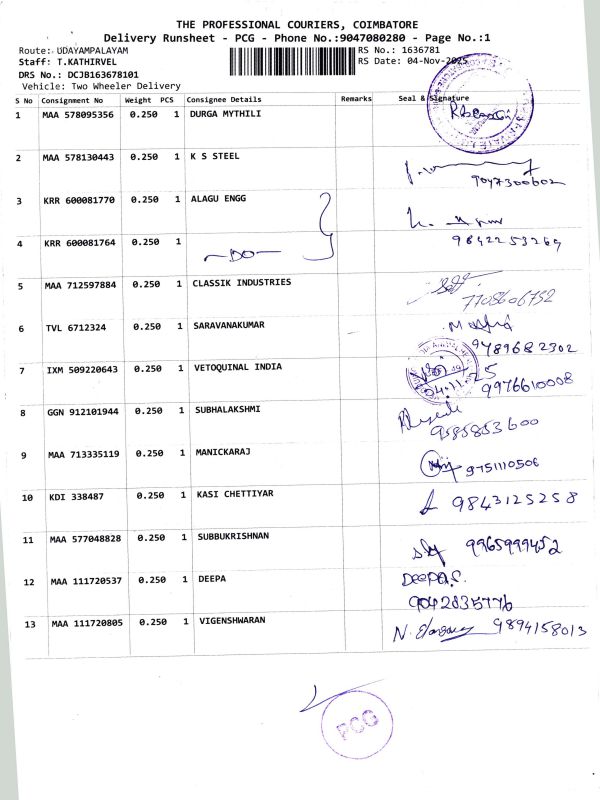 THE PROFESSIONAL COURIERS, COIMBATORE
Delivery Runsheet - PCG - Phone No.:9047080280 - Page No.:1
Route: UDAYAMPALAYAM RS No.: 1636781
Staff: T.KATHIRVEL RS Date: 04-Nov-2025
DRS No.: DCJB163678101
Vehicle: Two Wheeler Delivery
S No Consignment No Weight PCS Consignee Details Remarks Seal & Signature
1 MAA 578095356 0.250 1 DURGA MYTHILI
2 MAA 578130443 0.250 1 K S STEEL
9047300602
3 KRR 600081770 0.250 1 ALAGU ENGG
4 KRR 600081764 0.250 1 -DO- 9842253269
5 MAA 712597884 0.250 1 CLASSIK INDUSTRIES
7708606752
6 TVL 6712324 0.250 1 SARAVANAKUMAR
9789682302
7 IXM 509220643 0.250 1 VETOQUINAL INDIA
04.11.25 9976610008
8 GGN 912101944 0.250 1 SUBHALAKSHMI
9585853600
9 MAA 713335119 0.250 1 MANICKARAJ
9751110506
10 KDI 338487 0.250 1 KASI CHETTIYAR 9843125258
11 MAA 577048828 0.250 1 SUBBUKRISHNAN
9965999452
12 MAA 111720537 0.250 1 DEEPA Deepa.S.
9042835776
13 MAA 111720805 0.250 1 VIGENSHWARAN 9894158013
PCG